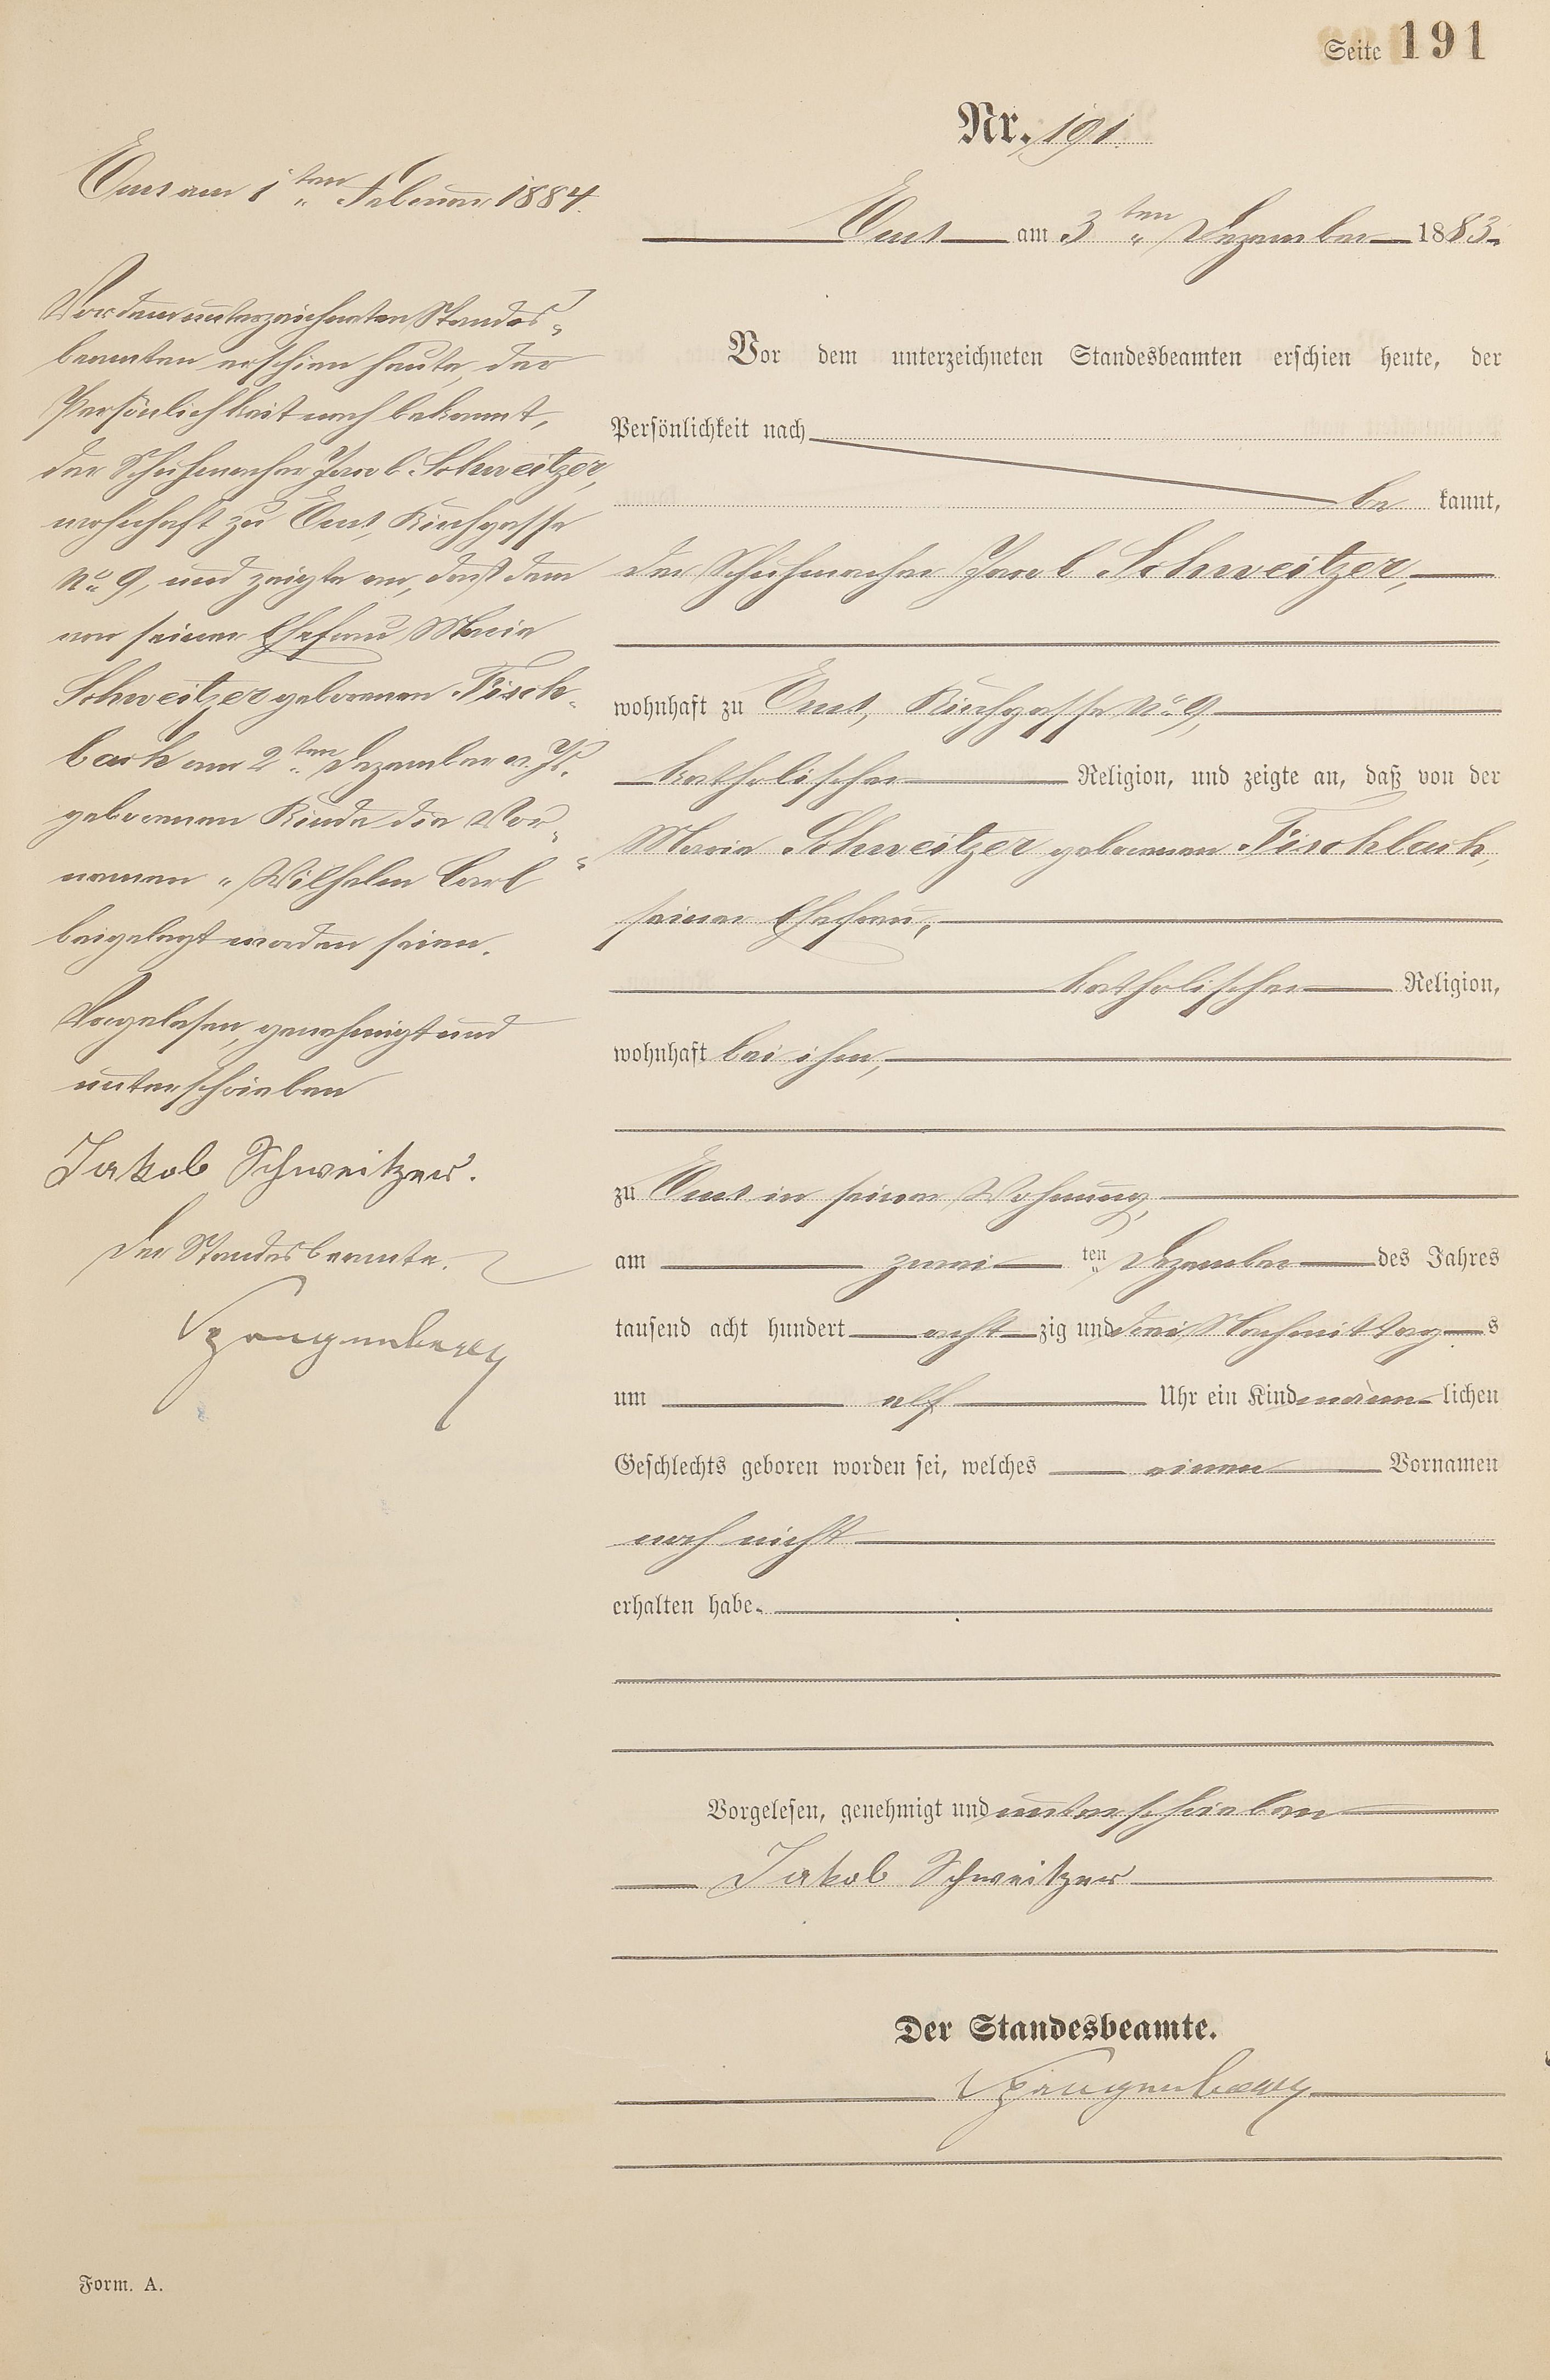 Seite 191
Nr. 191.
Ems am 3ten Dezember 1883.
Vor dem unterzeichneten Standesbeamten erschien heute, der
Persönlichkeit nach
be kannt,
der Schuhmacher Jacob Schweitzer,
wohnhaft zu Ems, Kirchgasse No. 9,
katholischer Religion, und zeigte an, daß von der
Maria Schweitzer geborenen Fischbach,
seiner Ehefrau,
katholischer Religion,
wohnhaft bei ihm,
zu Ems in seiner Wohnung,
am zwei ten Dezember des Jahres
tausend acht hundert acht zig und drei Nachmittag s
um elf Uhr ein Kind männ lichen
Geschlechts geboren worden sei, welches einen Vornamen
noch nicht
erhalten habe.
Vorgelesen, genehmigt und unterschrieben
Jakob Schweitzer
Der Standesbeamte.
Ems am 1ten Februar 1884.
Vor dem unterzeichneten Standes-
beamten erschien heute, der
Persönlichkeit nach bekannt,
der Schuhmacher Jacob Schweitzer,
wohnhaft zu Ems, Kirchgasse
No. 9, und zeigte an, daß dem
von seiner Ehefrau Maria
Schweitzer geborenen Fisch-
bach am 2ten Dezember v. Js.
geborenen Kinde die Vor-
namen "Wilhelm Carl"
beigelegt worden seien.
Vorgelesen, genehmigt und
unterschrieben
Jakob Schweitzer.
Der Standesbeamte.
Form. A.